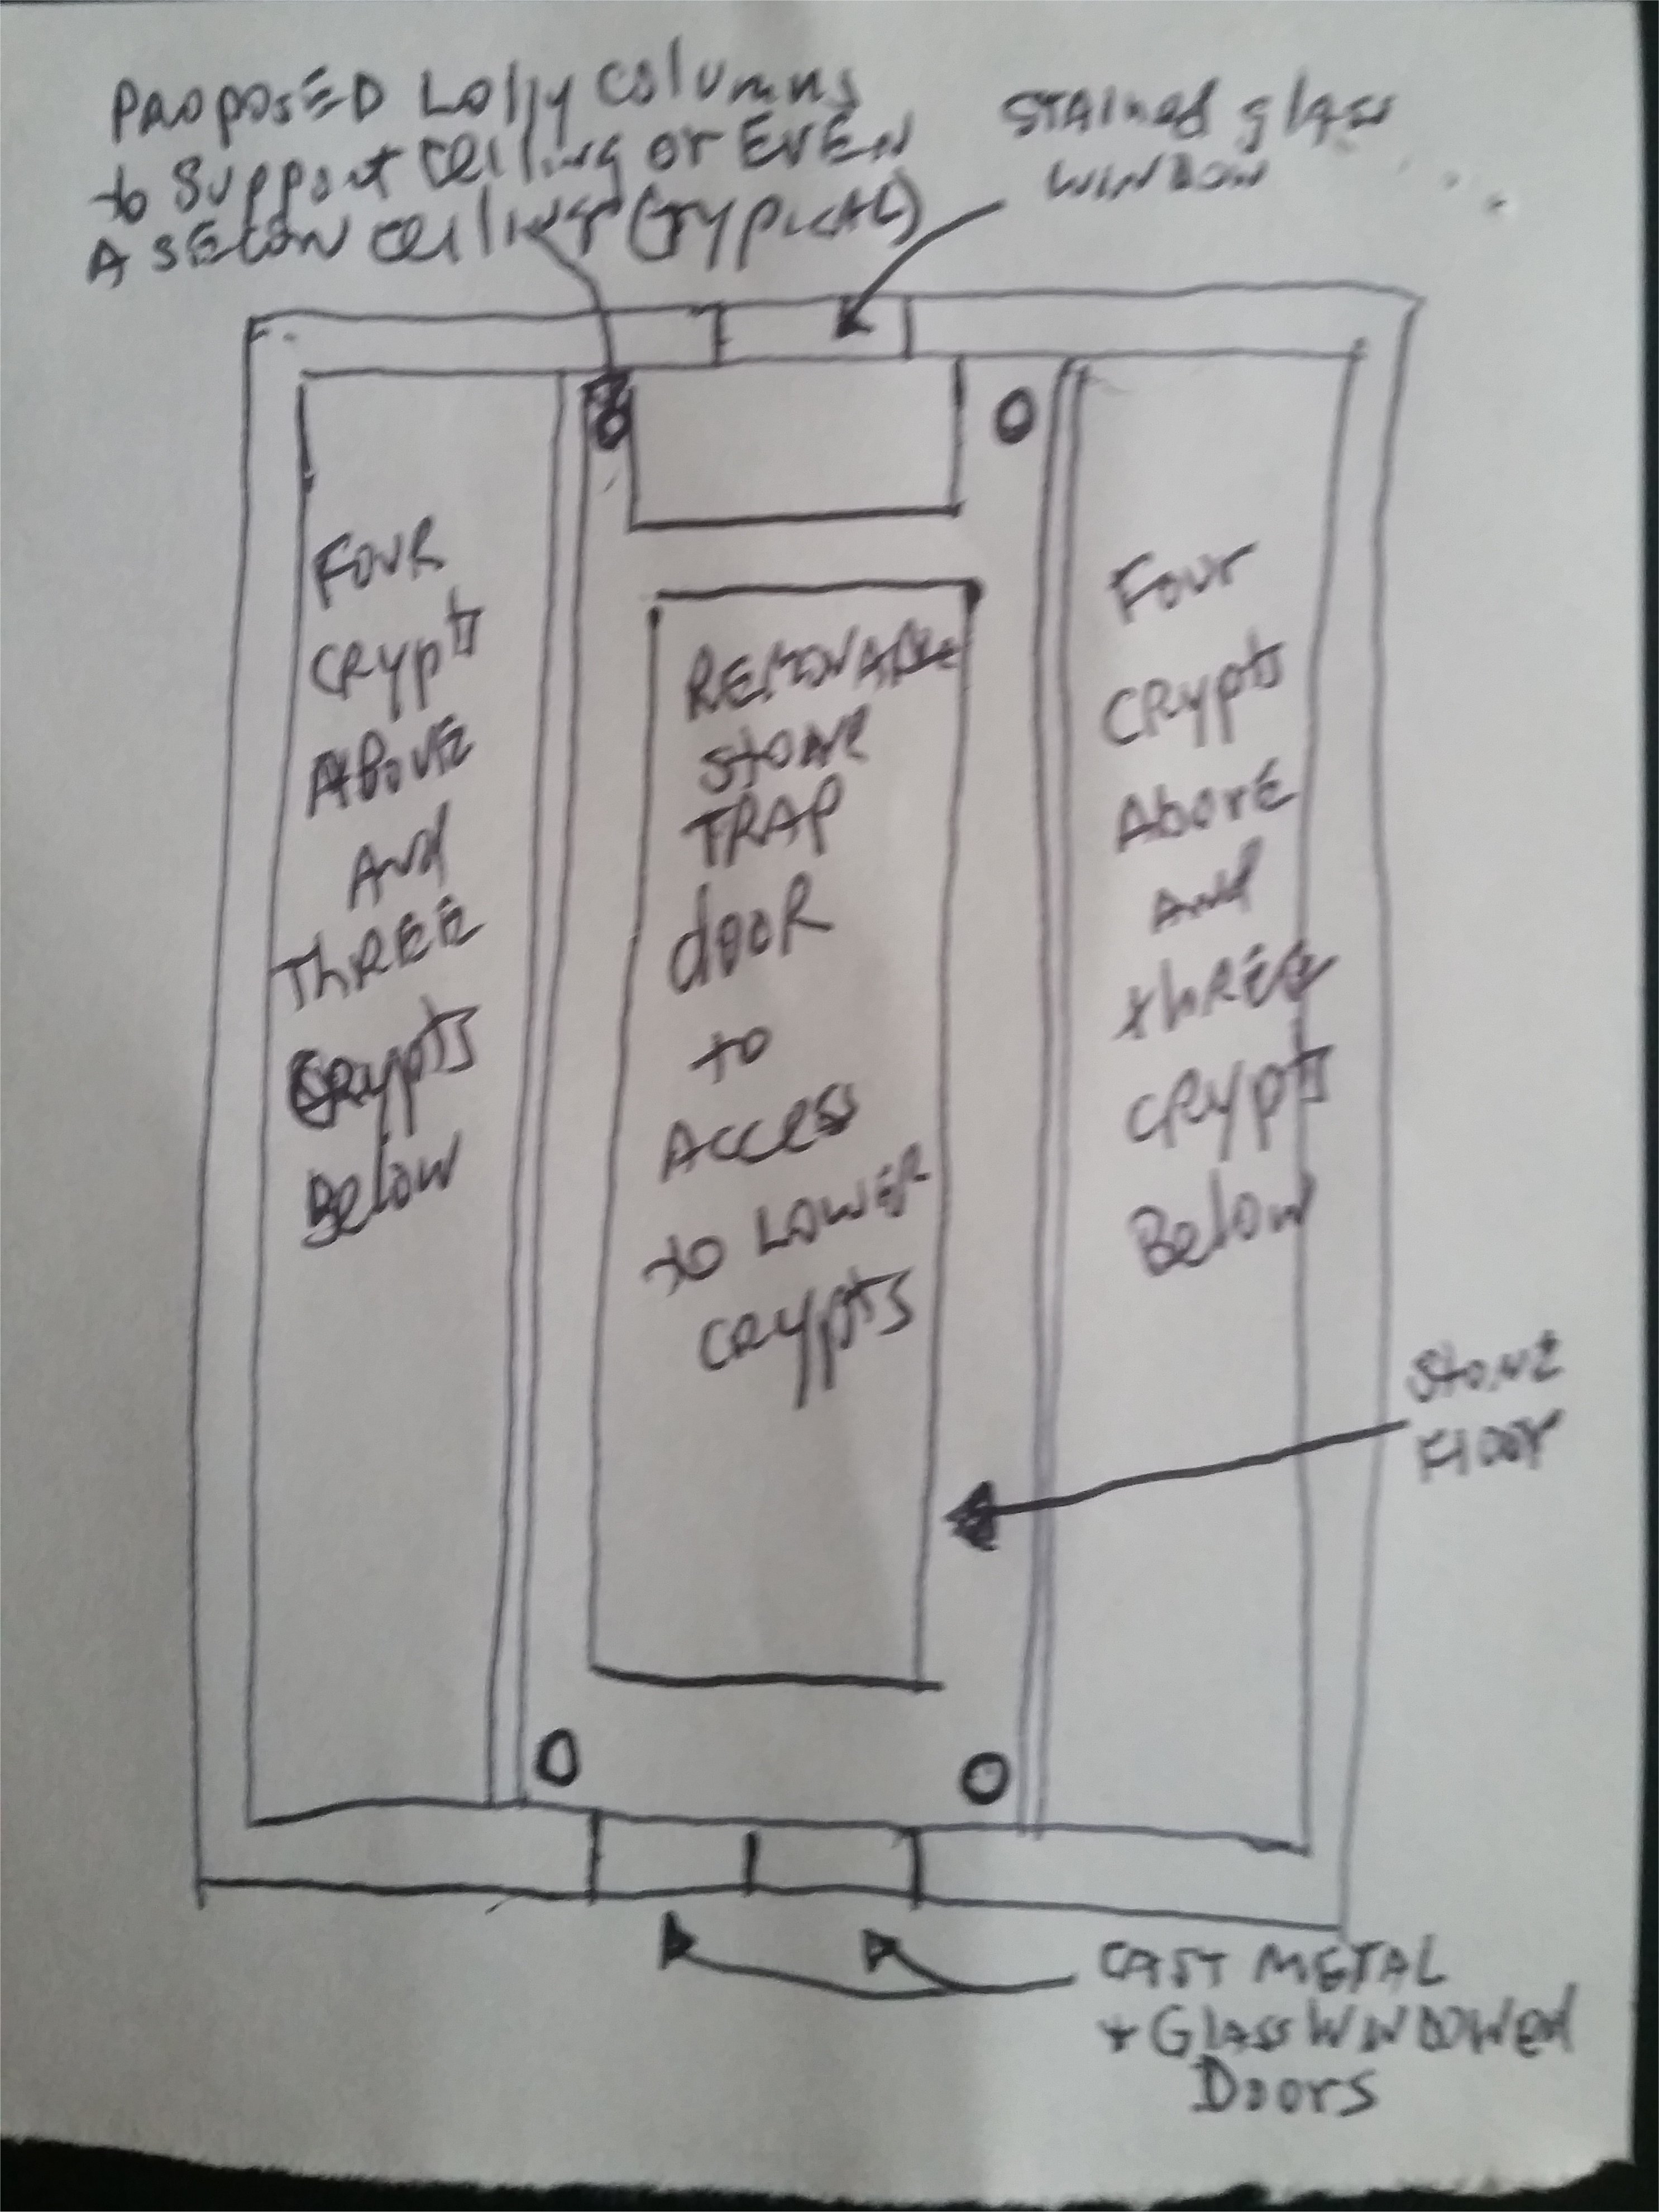 PROPOSED Lolly columns
to Support ceiling or EVEN
A SECON ceiling (TYPICAL)
STAINED glass
WINDOW
FOUR
CRYPTS
ABOVE
And
THREE
CRYPTS
Below
REMOVABLE
STONE
TRAP
dOOR
to
ACCESS
to LOWER
CRYPTS
Four
CRYPTS
AbovE
And
thREE
CRYPTS
Below
StonE
Floor
CAST METAL
+ GLASS WINDOWEd
Doors